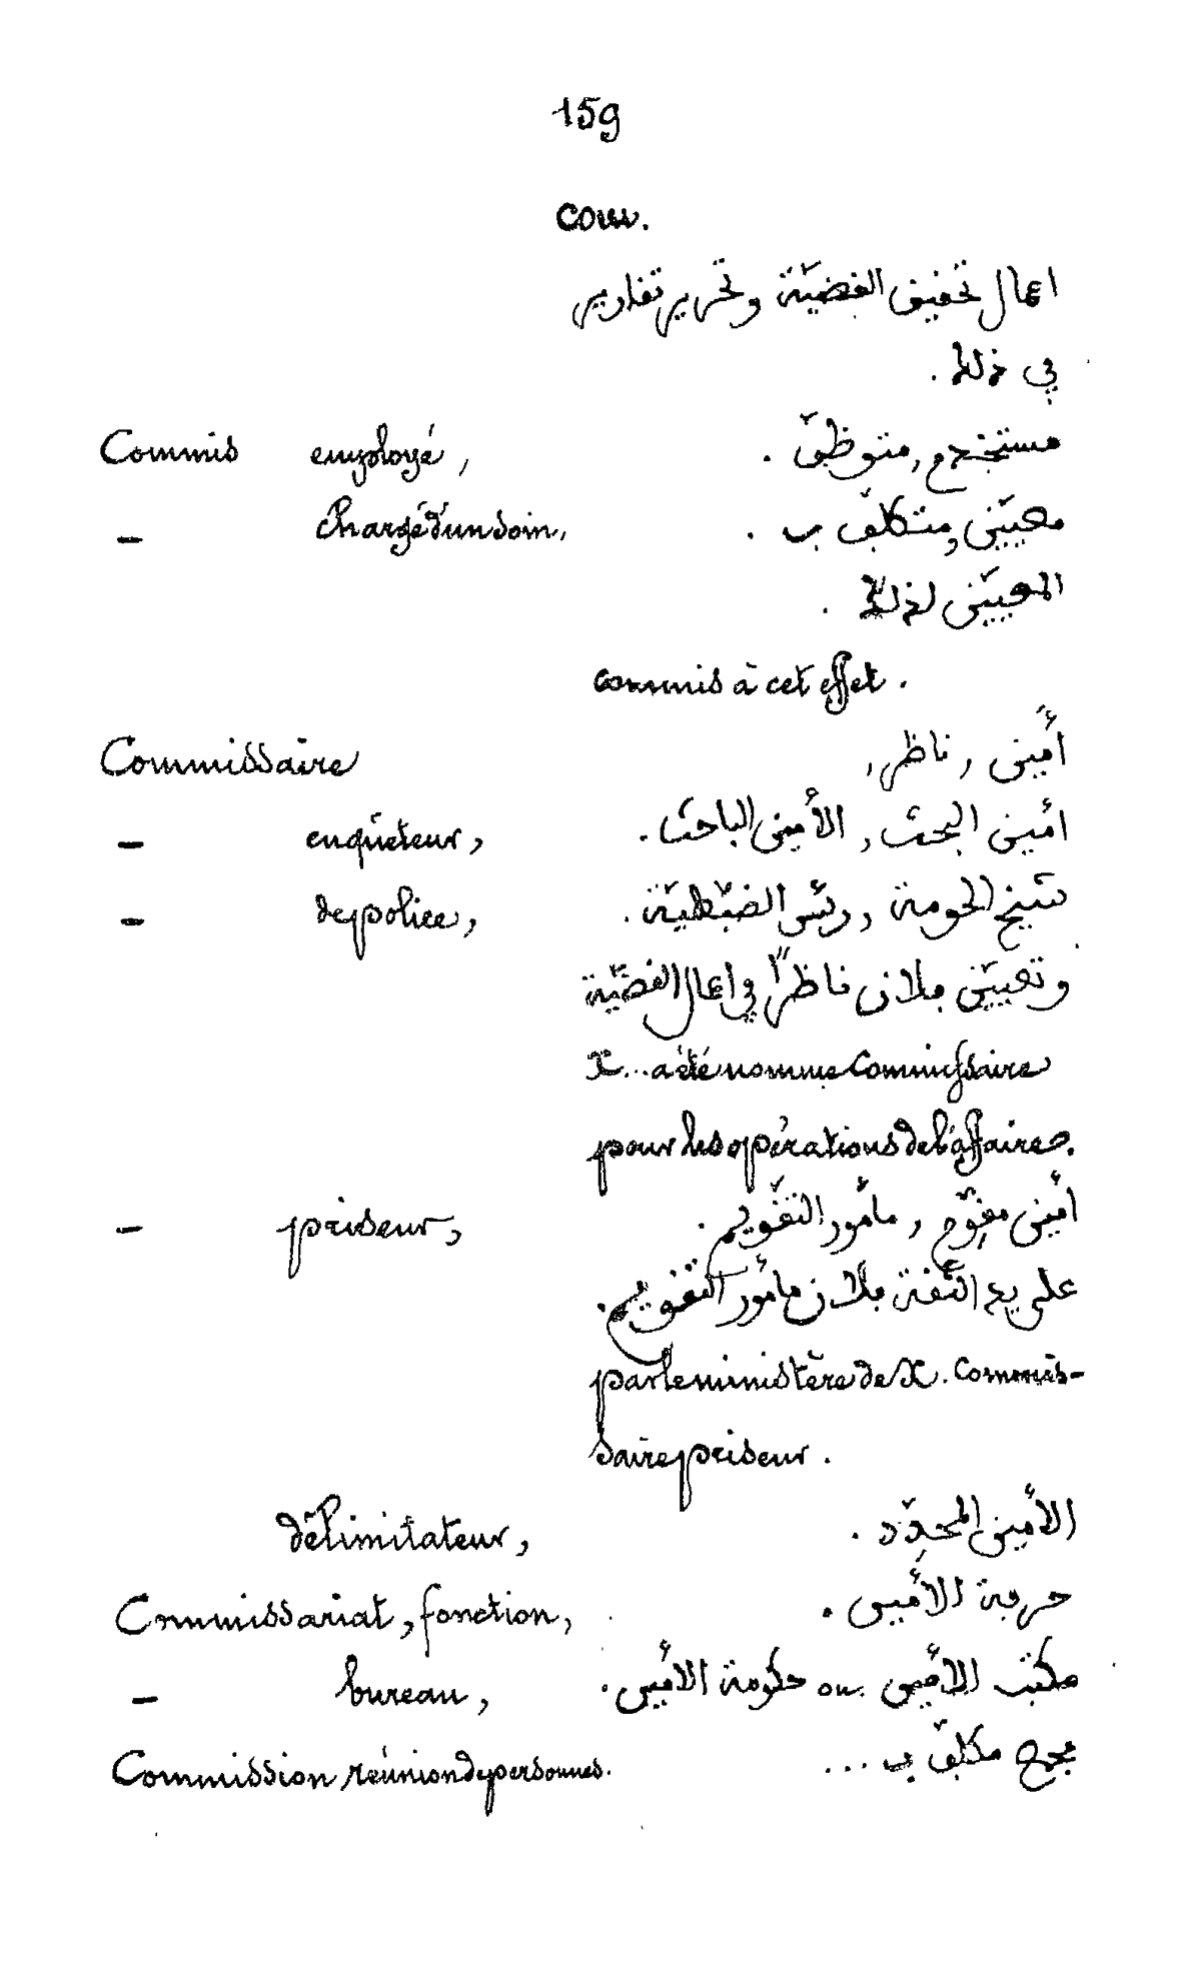 159
com.
اعمال تحقيق القضيّة وتحرير تقارير
في ذلك .
Commis employé, مستخدم , متوظّف .
— chargé d'un soin, معيّن , متكلّف ب .
المعيّن لذلك .
commis à cet effet .
Commissaire أمين , ناظر ,
— enquêteur, أمين البحث , الأمين الباحث .
— de police, شيخ الحومة , رئس الضبطيّة .
وتعيّن فلان ناظرًا في اعمال القضيّة
X... a été nommé Commissaire
pour les opérations de l'affaire.
— priseur, أمين مقوّم , مأمور التقويم .
على يد الثقة فلان مأمور التقويم .
par le ministère de X. Commis-
saire priseur .
délimitateur, الأمين المحدِّد .
Commissariat, fonction, حرفة الأمين .
— bureau, مكتب الأمين ou حكومة الأمين .
Commission réunion de personnes. مجمع مكلّف ب ...